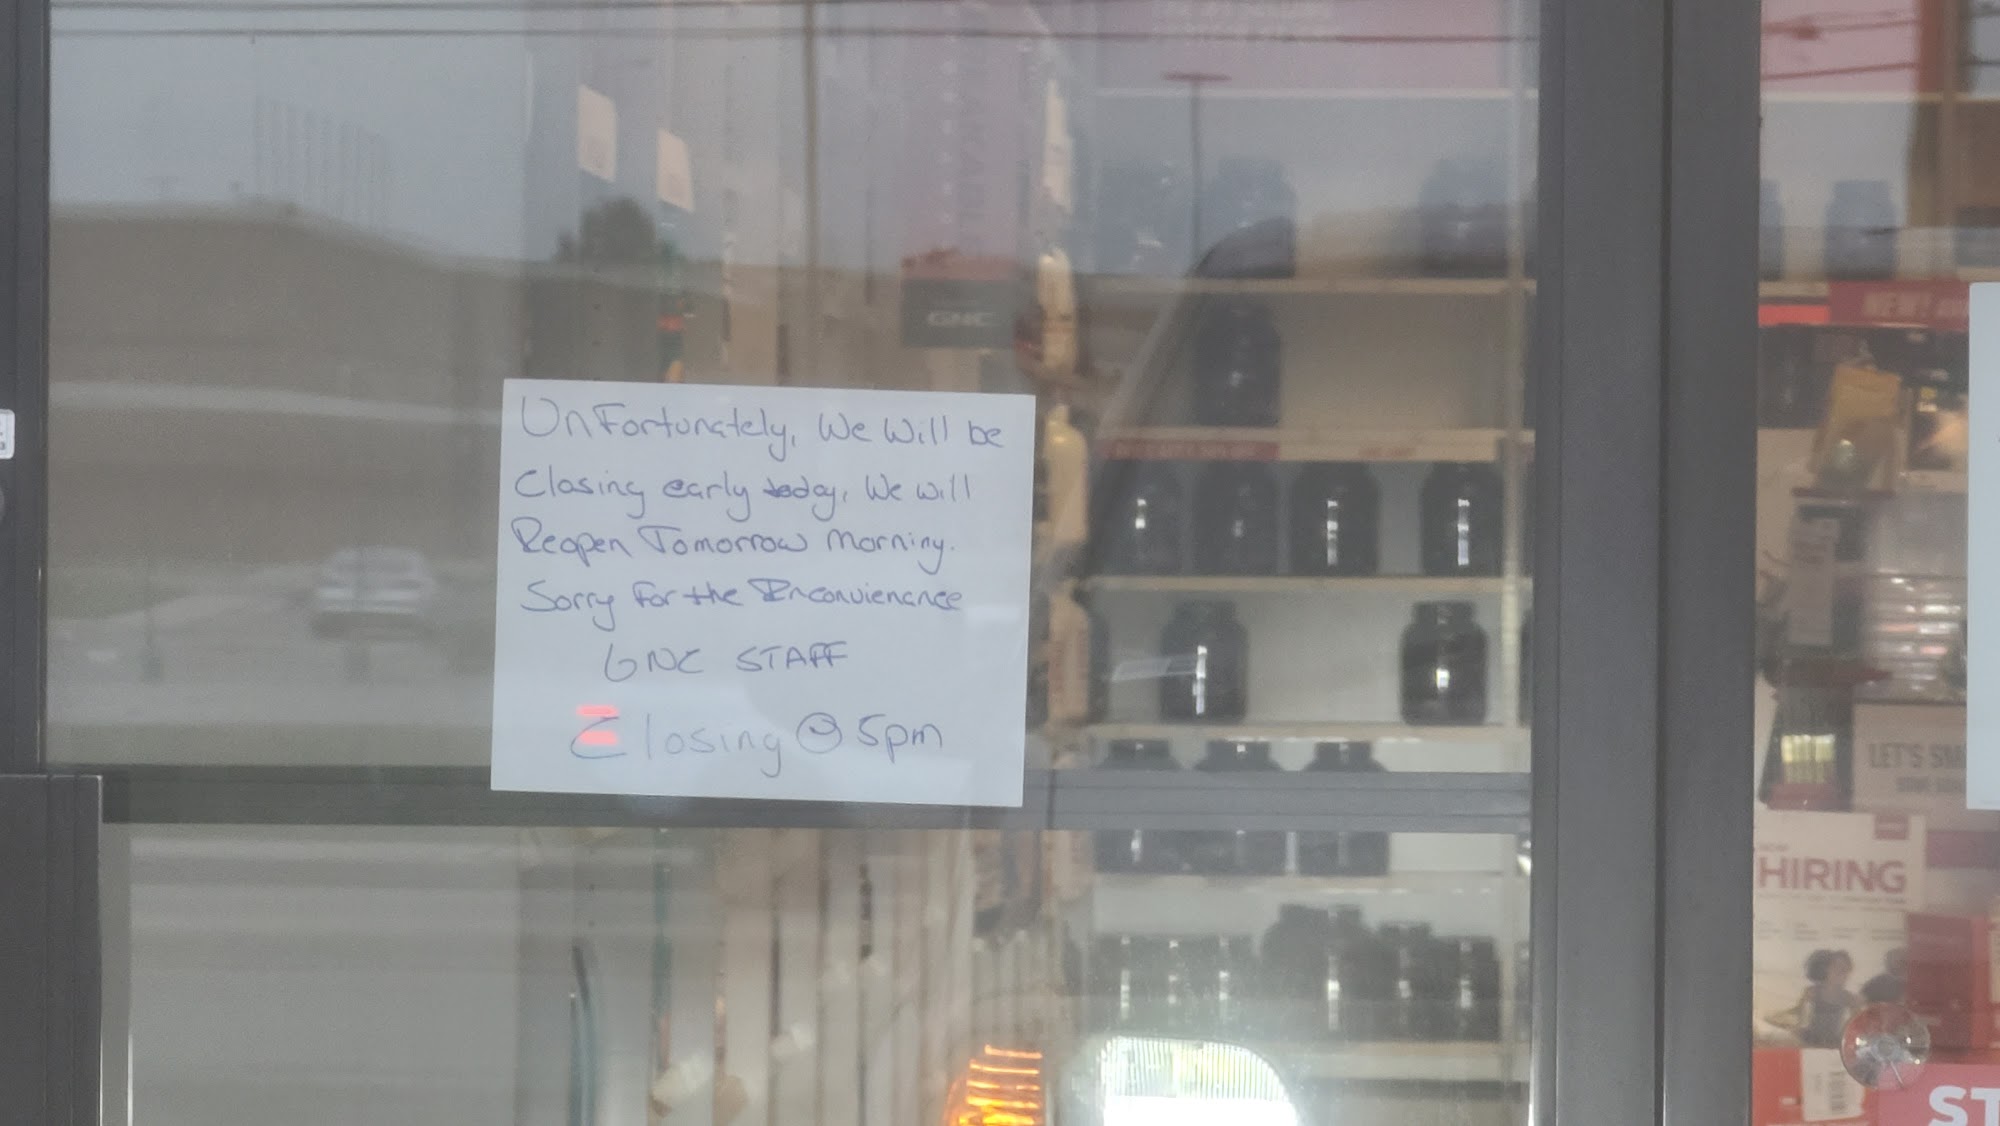 UnFortunately, We Will be
Closing early today, We will
Reopen Tomorrow Morning.
Sorry For the Inconvienance
GNC STAFF
Closing @ 5pm
GNC
NEW!
LET'S
HIRING